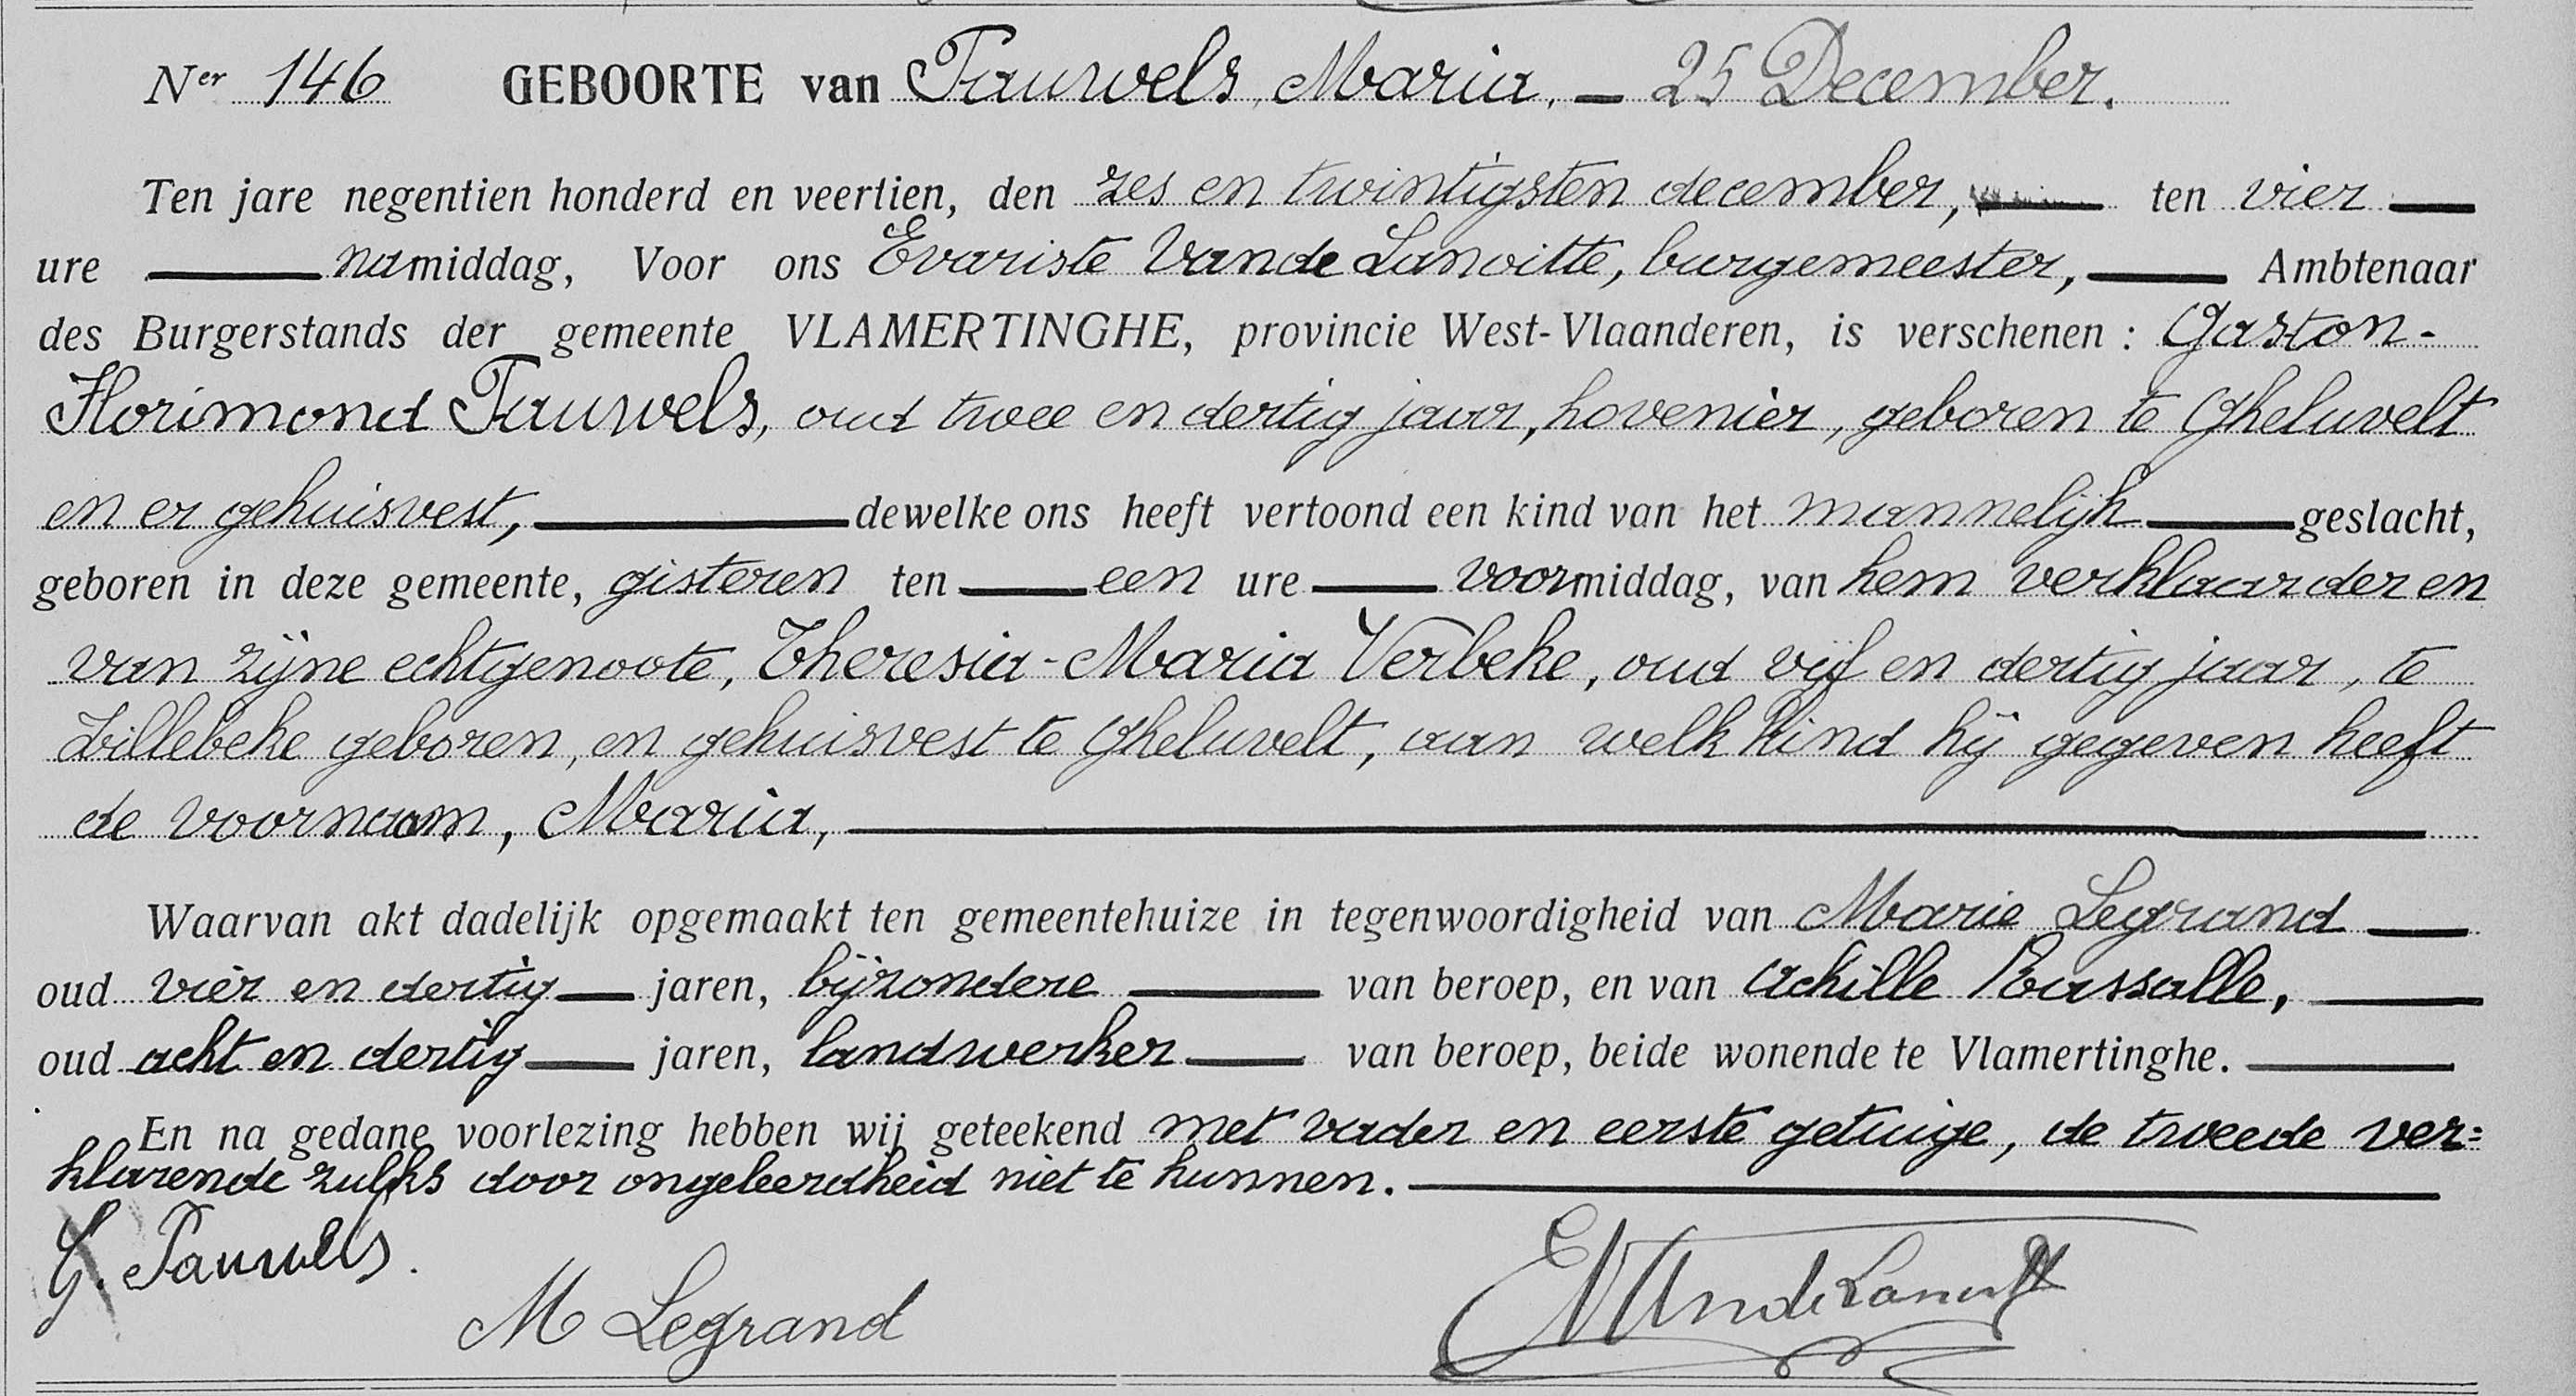 Ner 146 GEBOORTE van Pauwels, Maria, — 25 December.
Ten jare negentien honderd en veertien, den zes en twintigsten december, — ten vier —
ure — namiddag, Voor ons Evariste Vande Lanoitte, burgemeester, — Ambtenaar
des Burgerstands der gemeente VLAMERTINGHE, provincie West-Vlaanderen, is verschenen : Gaston-
Florimond Pauwels, oud twee en dertig jaar, hovenier, geboren te Gheluvelt
en er gehuisvest, — dewelke ons heeft vertoond een kind van het mannelijk — geslacht,
geboren in deze gemeente, gisteren ten — een ure — voormiddag, van hem verklaarder en
van zijne echtgenoote, Theresia-Maria Verbeke, oud vijf en dertig jaar, te
Zillebeke geboren, en gehuisvest te Gheluvelt, aan welk kind hij gegeven heeft
de voornaam, Maria, —
Waarvan akt dadelijk opgemaakt ten gemeentehuize in tegenwoordigheid van Marie Legrand —
oud vier en dertig — jaren, bijzondere — van beroep, en van Achille Bassalle, —
oud acht en dertig — jaren, landwerker — van beroep, beide wonende te Vlamertinghe. —
En na gedane voorlezing hebben wij geteekend met vader en eerste getuige, de tweede ver=
klarende zulks door ongeleerdheid niet te kunnen. —
G. Pauwels.
M Legrand
E VandeLanoitte